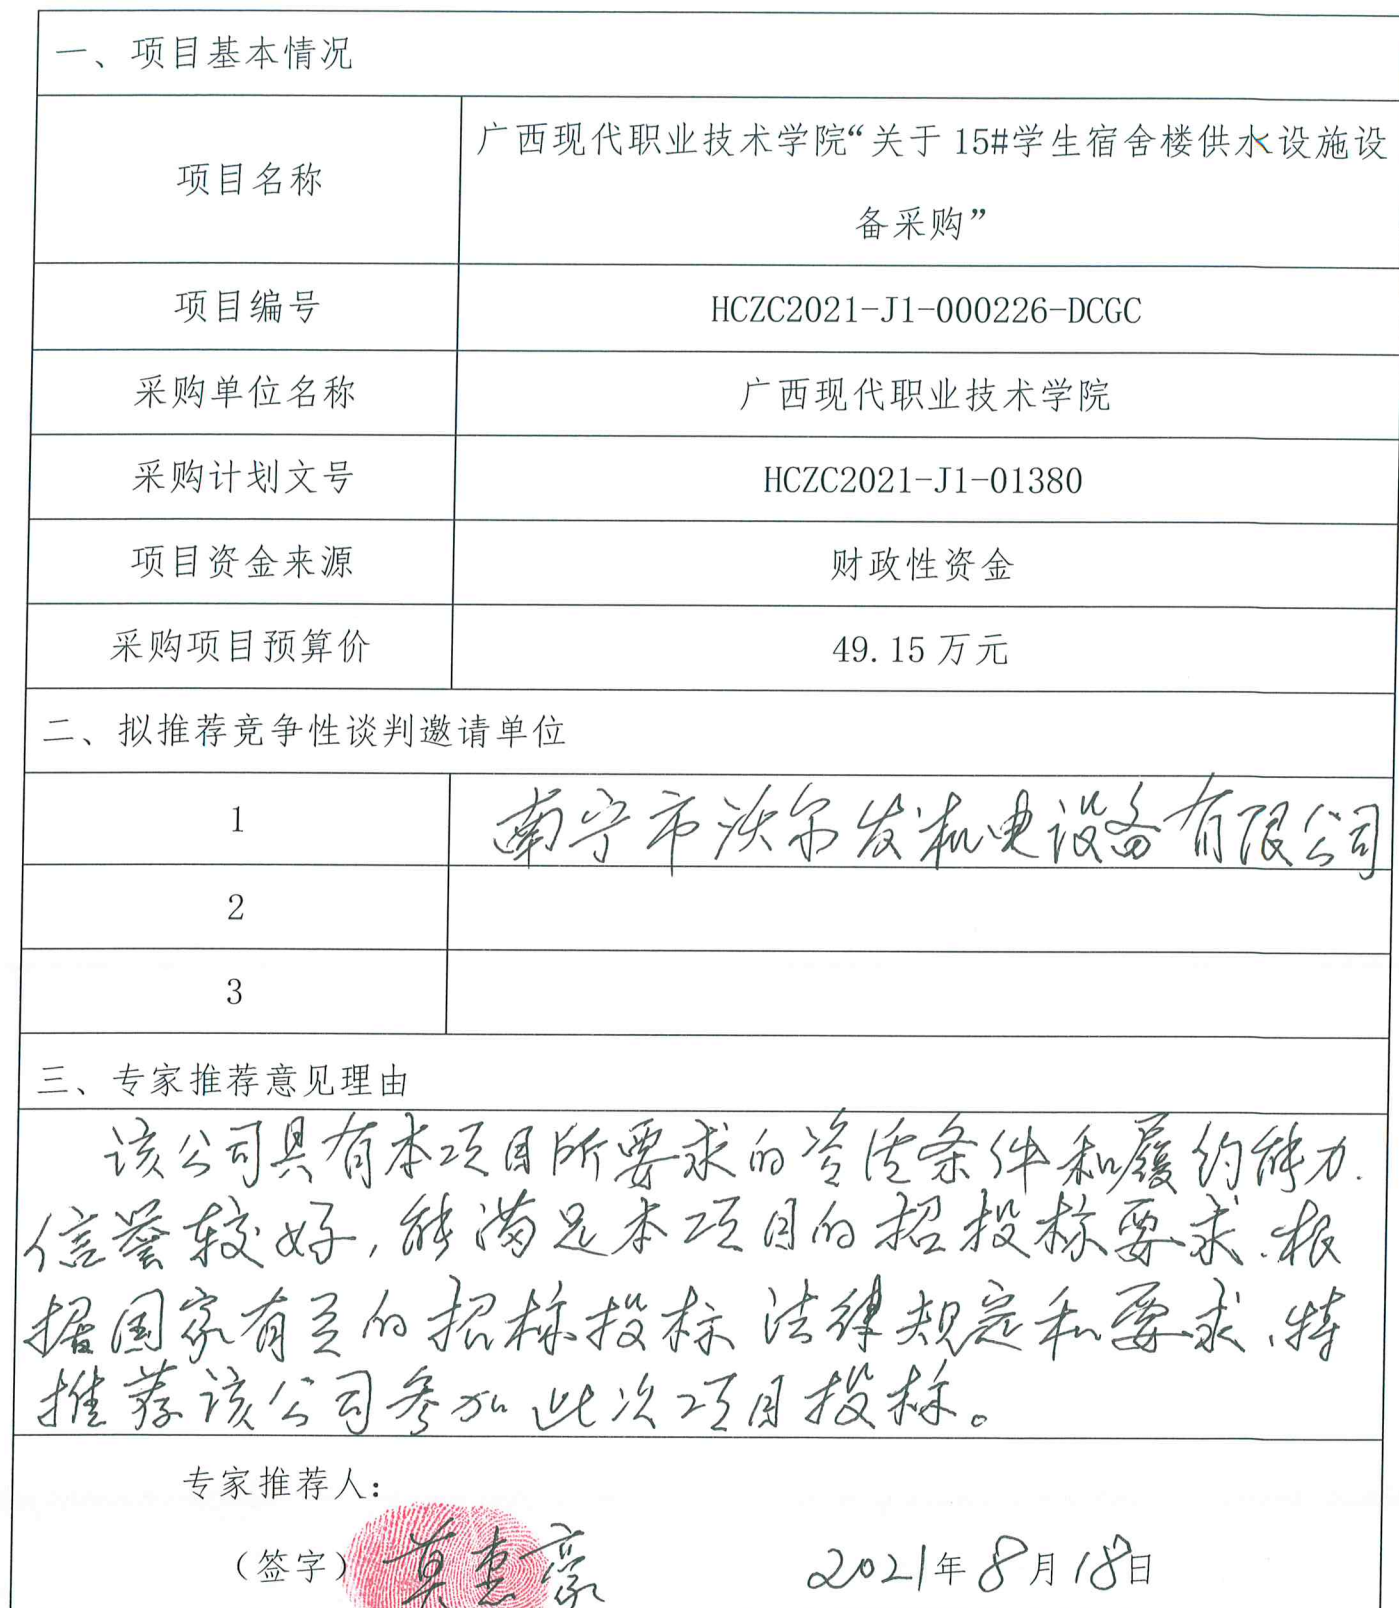 一、项目基本情况
项目名称
广西现代职业技术学院“关于 15#学生宿舍楼供水设施设
备采购”
项目编号
HCZC2021-J1-000226-DCGC
采购单位名称
广西现代职业技术学院
采购计划文号
HCZC2021-J1-01380
项目资金来源
财政性资金
采购项目预算价
49.15 万元
二、拟推荐竞争性谈判邀请单位
1
南宁市沃尔发机电设备有限公司
2
3
三、专家推荐意见理由
该公司具有本项目所要求的资质条件和履约能力.
信誉较好,能满足本项目的招投标要求.根
据国家有关的招标投标法律规定和要求,特
推荐该公司参加此次项目投标。
专家推荐人:
(签字)
2021年8月18日